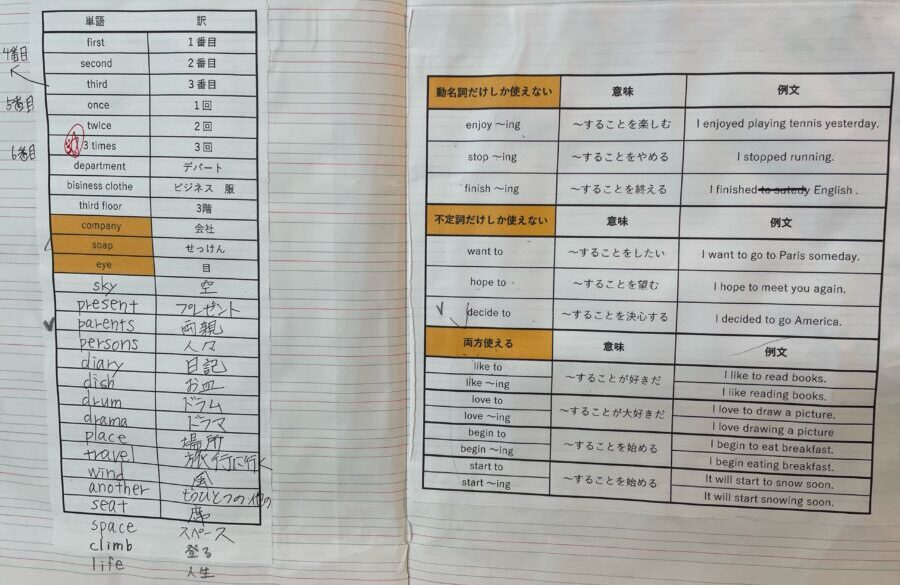 単語 訳
first 1番目
4番目
second 2番目
third 3番目
5番目
once 1回
twice 2回
3 times 3回
6番目
department デパート
bisiness clothe ビジネス 服
third floor 3階
company 会社
soap せっけん
eye 目
sky 空
present プレゼント
parents 両親
persons 人々
diary 日記
dish お皿
drum ドラム
drama ドラマ
place 場所
travel 旅行に行く
wind 風
another もうひとつの、他の
seat 席
space スペース
climb 登る
life 人生
動名詞だけしか使えない 意味 例文
enjoy ～ing ～することを楽しむ I enjoyed playing tennis yesterday.
stop ～ing ～することをやめる I stopped running.
finish ～ing ～することを終える I finished to sutedy English .
不定詞だけしか使えない 意味 例文
want to ～することをしたい I want to go to Paris someday.
hope to ～することを望む I hope to meet you again.
decide to ～することを決心する I decided to go America.
両方使える 意味 例文
like to ～することが好きだ I like to read books.
like ～ing I like reading books.
love to ～することが大好きだ I love to draw a picture.
love ～ing I love drawing a picture
begin to ～することを始める I begin to eat breakfast.
begin ～ing I begin eating breakfast.
start to ～することを始める It will start to snow soon.
start ～ing It will start snowing soon.